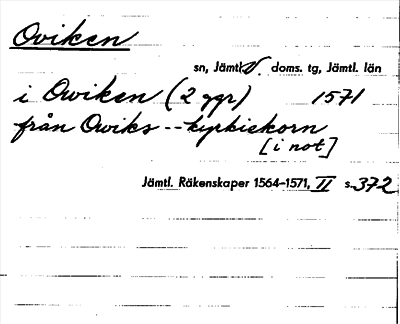 Oviken
sn, Jämtl. V. doms. tg, Jämtl. län
i Owiken (2 ggr) 1571
från Owiks -- kyrkiskorn
[i not]
Jämtl. Räkenskaper 1564–1571, II s. 372